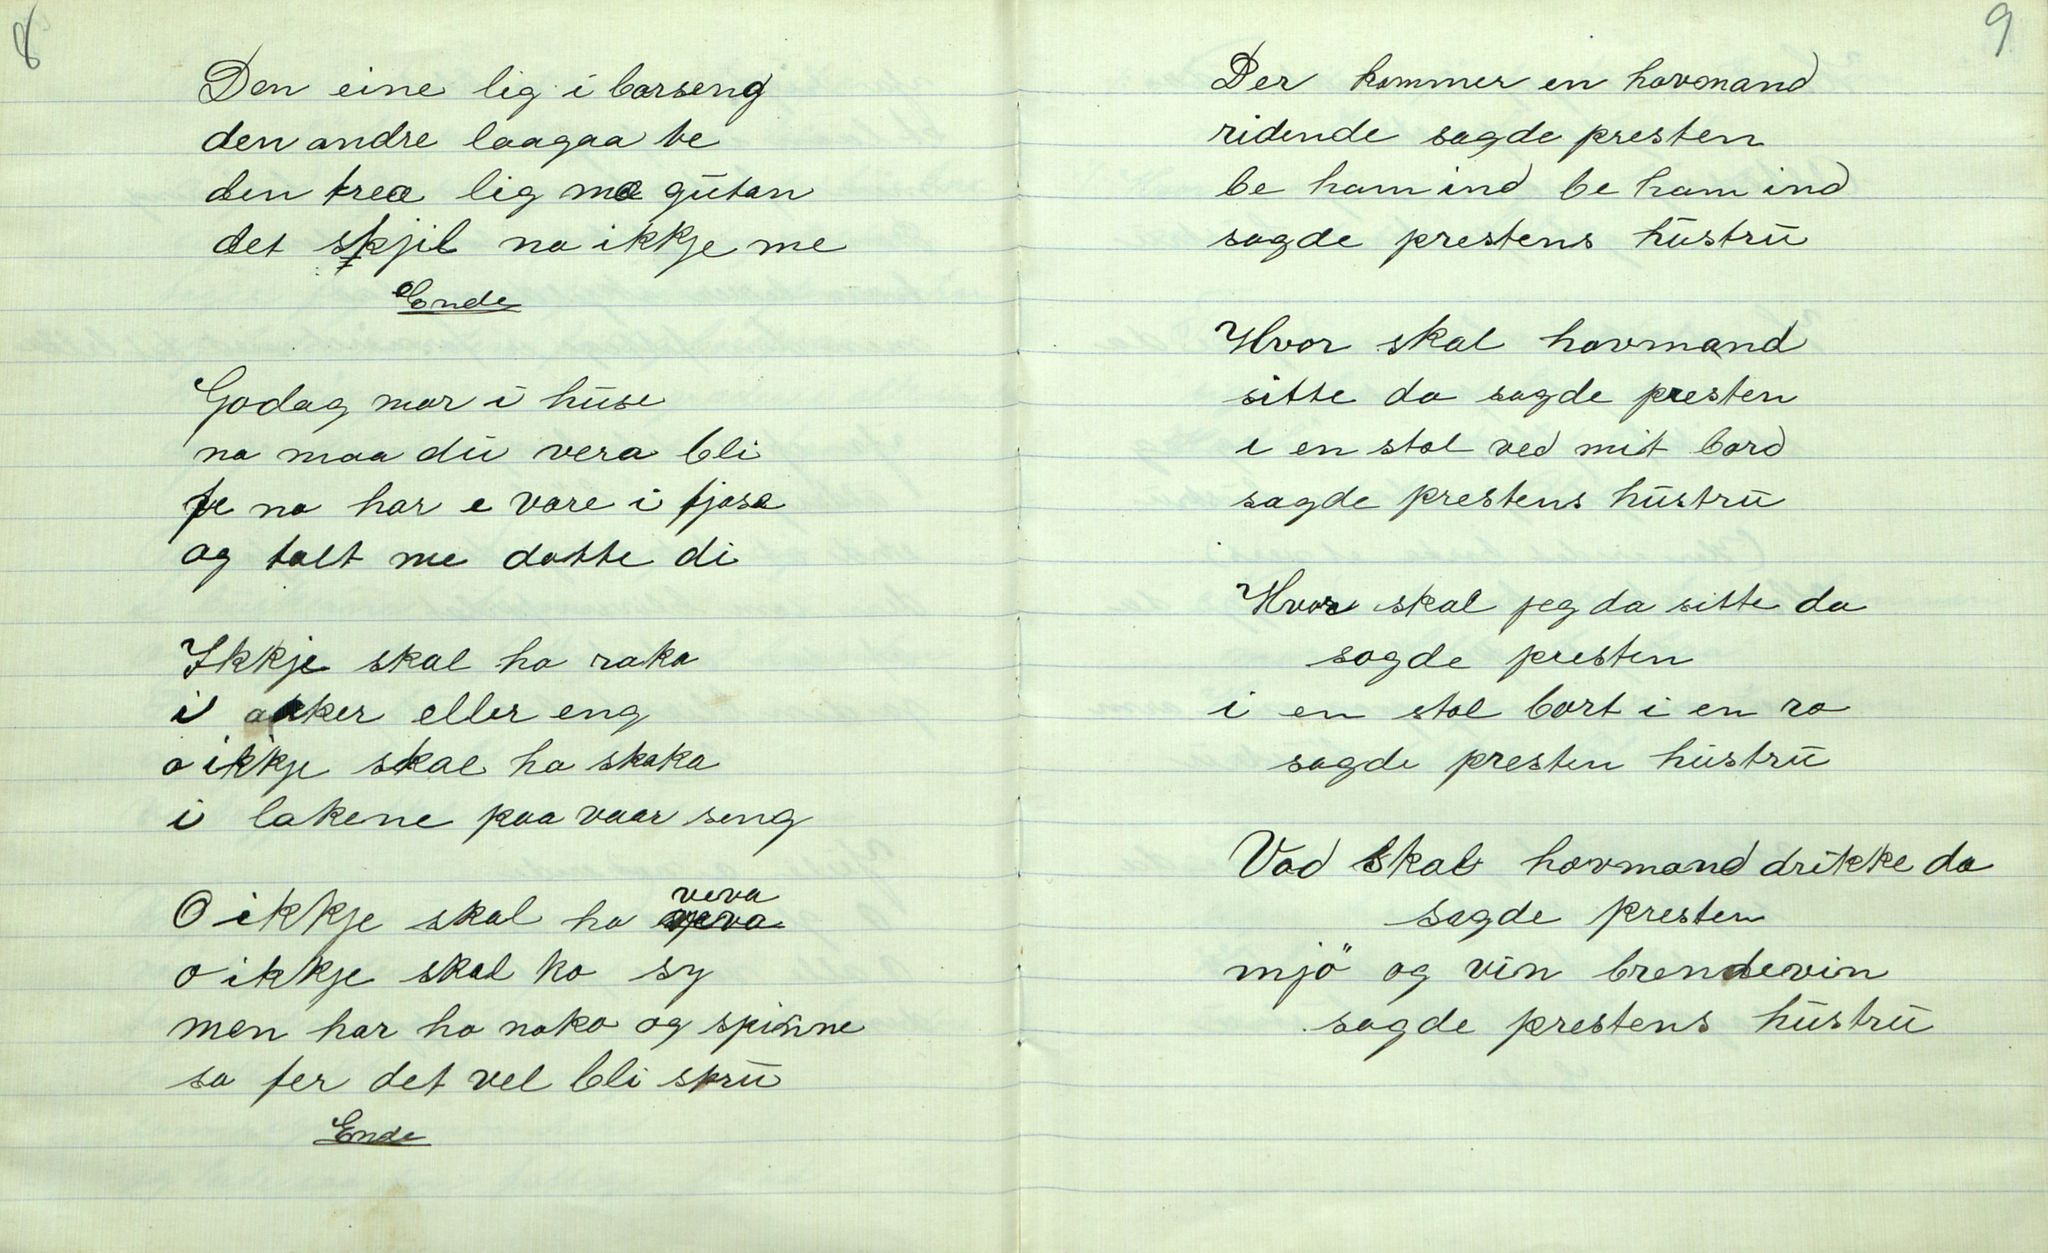 8
Den eine lig i barseng
den andre laagaa ve
den treæ lig mæ gutan
det skjil na ikkje me
Ende
Godag mor i huse
no maa du vera bli
fe no har e vore i fjose
og talt me dotte di
Ikkje skal ho raka
i aaker eller eng
o ikkje skal ho skaka
i lakene paa vaar seng
O ikkje skal ho veva
o ikkje skal ho sy
men har ho noko og spinne
so fer det vel bli skru
Ende
9
Der kommer en hovmand
ridende sagde presten
be ham ind be ham ind
sagde prestens hustru
Hvor skal hovmand
sitte da sagde presten
i en stol ved mit bord
sagde prestens hustru
Hvor skal jeg da sitte da
sagde presten
i en stol bort i en ro
sagde presten hustru
Vad skal hovmand drikke da
sagde presten
mjö og vin brendevin
sagde prestens hustru